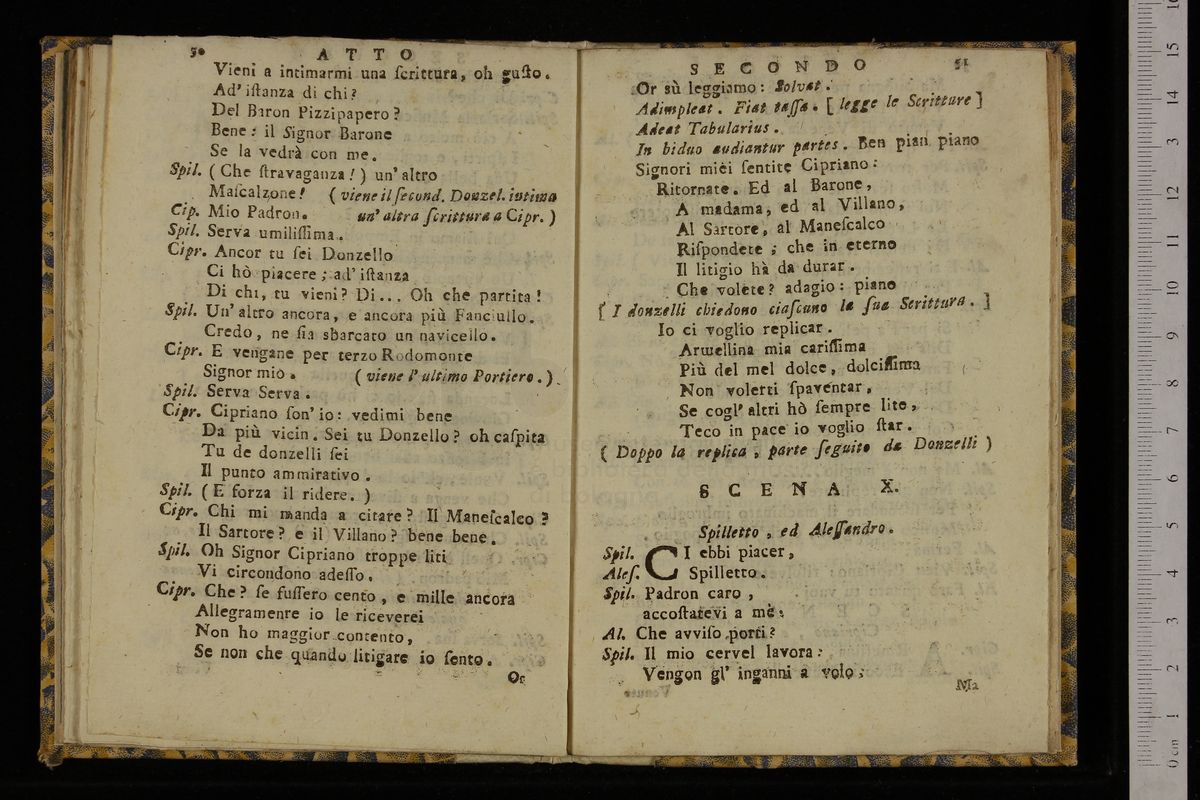 50 ATTO
Vieni a intimarmi una ſcrittura, oh guſto.
Ad' iſtanza di chi?
Del Baron Pizzipapero?
Bene: il Signor Barone
Se la vedrà con me.
Spil. (Che ſtravaganza!) un' altro
Maſcalzone! (viene il ſecond. Donzel. intima
Cip. Mio Padron. un' altra ſcrittura a Cipr.)
Spil. Serva umiliſſima.
Cipr. Ancor tu ſei Donzello
Ci hò piacere; ad' iſtanza
Di chi, tu vieni? Di... Oh che partita!
Spil. Un' altro ancora, e ancora più Fanciullo.
Credo, ne ſia sbarcato un navicello.
Cipr. E vengane per terzo Rodomonte
Signor mio. (viene l' ultimo Portiere.)
Spil. Serva Serva.
Cipr. Cipriano ſon' io: vedimi bene
Da più vicin. Sei tu Donzello? oh caſpita
Tu de donzelli ſei
Il punto ammirativo.
Spil. (E forza il ridere.)
Cipr. Chi mi manda a citare? Il Maneſcalco?
Il Sartore? e il Villano? bene bene.
Spil. Oh Signor Cipriano troppe liti
Vi circondono adeſſo.
Cipr. Che? ſe fuſſero cento, e mille ancora
Allegramenre io le riceverei
Non ho maggior contento,
Se non che quando litigare io ſento.
Or
SECONDO 51
Or sù leggiamo: Solvat.
Adimpleat. Fiat taſſa. [legge le Scritture]
Adeat Tabularius.
In biduo audiantur partes. Ben pian piano
Signori miei ſentite Cipriano:
Ritornate. Ed al Barone,
A madama, ed al Villano,
Al Sartore, al Maneſcalco
Riſpondete; che in eterno
Il litigio hà da durar.
Che volete? adagio: piano
[I donzelli chiedono ciaſcuno la ſua Scrittura.]
Io ci voglio replicar.
Armellina mia cariſſima
Più del mel dolce, dolciſſima
Non volerti ſpaventar,
Se cogl' altri hò ſempre lite,
Teco in pace io voglio ſtar.
(Doppo la replica, parte ſeguito da Donzelli)
SCENA X.
Spilletto, ed Aleſſandro.
Spil. CI ebbi piacer,
Aleſ. Spilletto.
Spil. Padron caro,
accoſtatevi a mè:
Al. Che avviſo porti?
Spil. Il mio cervel lavora:
Vengon gl' inganni a volo;
Ma